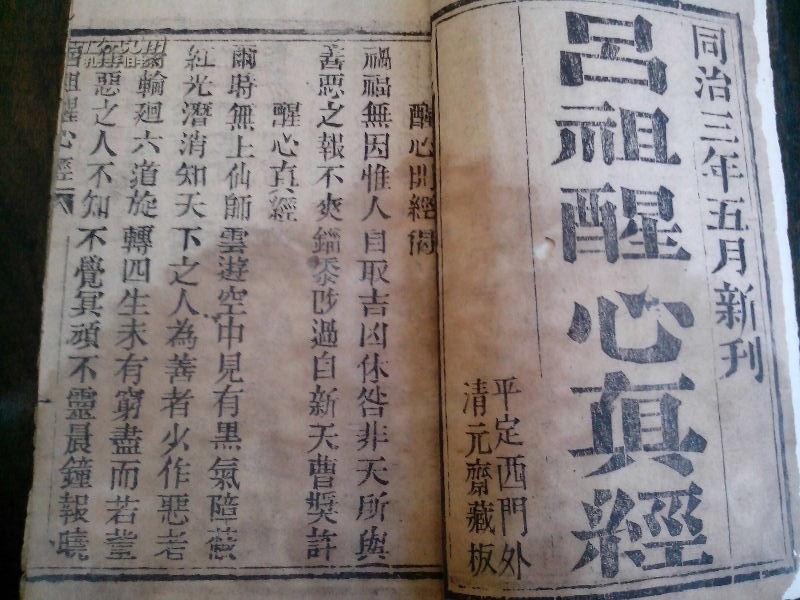 同治三年五月新刊
呂祖醒心真經
平定西門外
清元齋藏板
醒心開經偈
禍福無因惟人自取吉凶休咎非天所與
善惡之報不爽錙黍過自新天曹獎許
醒心真經
爾時無上仙師雲遊空中見有黑氣障蔽
紅光潛消知天下之人為善者少作惡者
輪廻六道旋轉四生未有窮盡而若輩
惡之人不知不覺冥頑不靈晨鐘報曉
祖醒心經